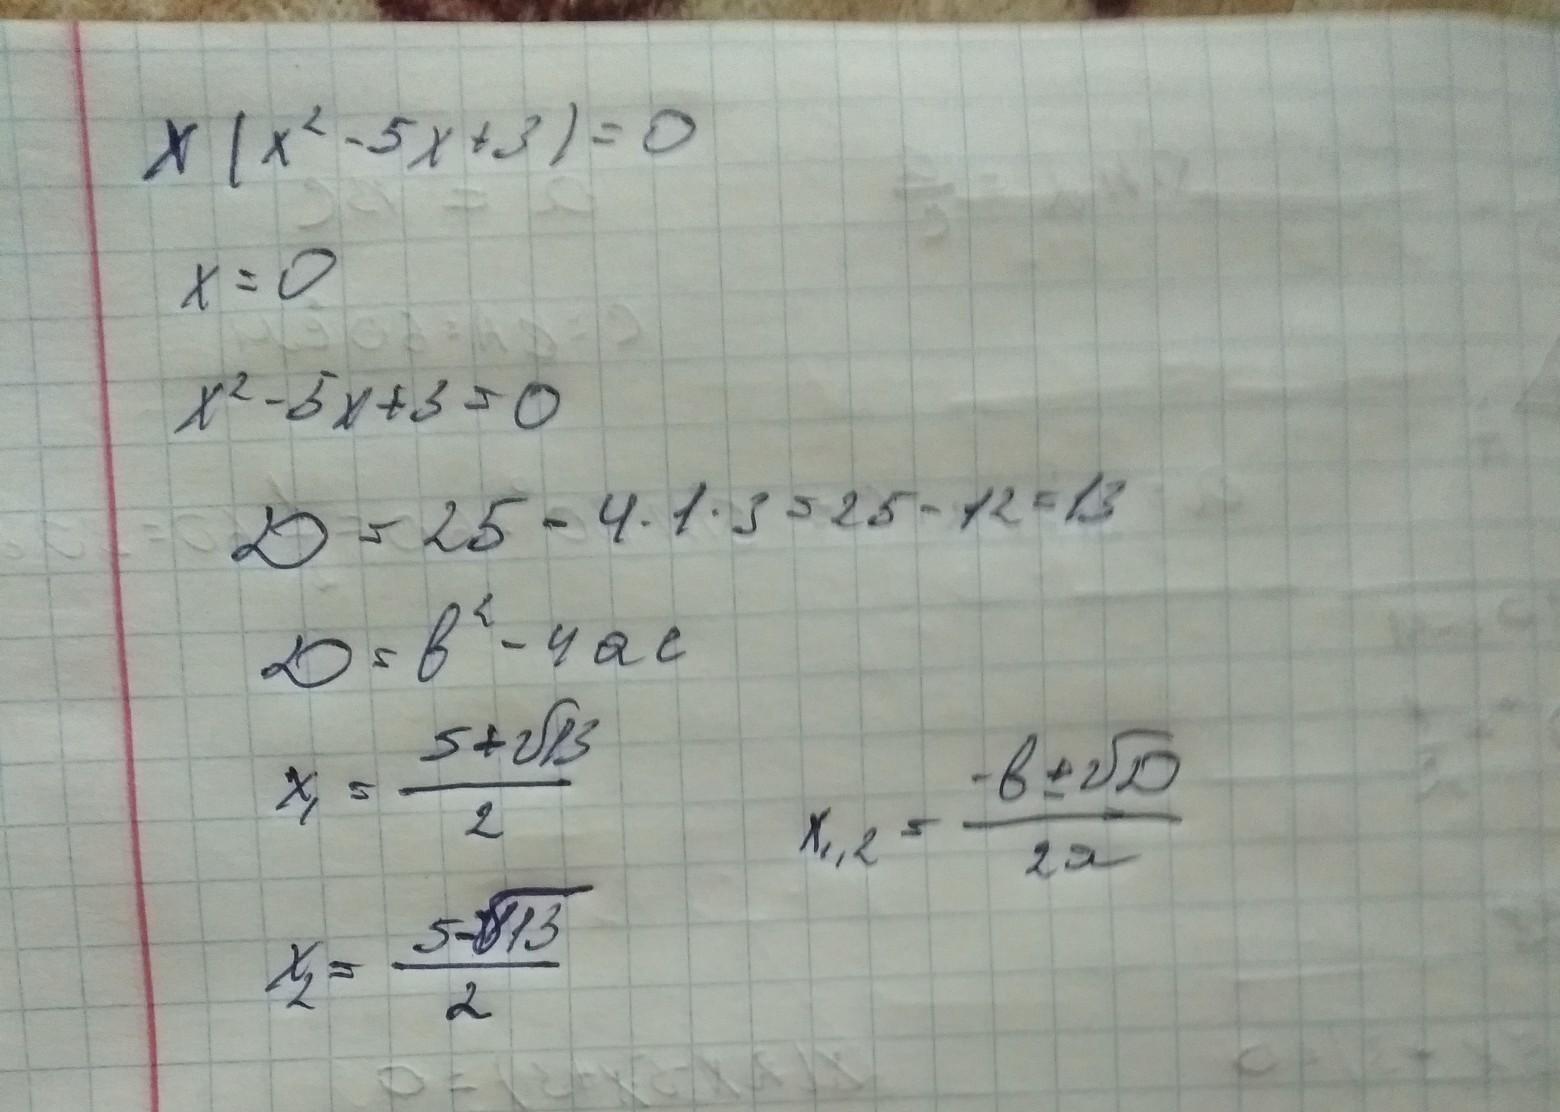 x(x²-5x+3)=0
x=0
x²-5x+3=0
D=25-4·1·3=25-12=13
D=b²-4ac
x₁=(5+√13)/2
x₁,₂=(-b±√D)/2a
x₂=(5-√13)/2